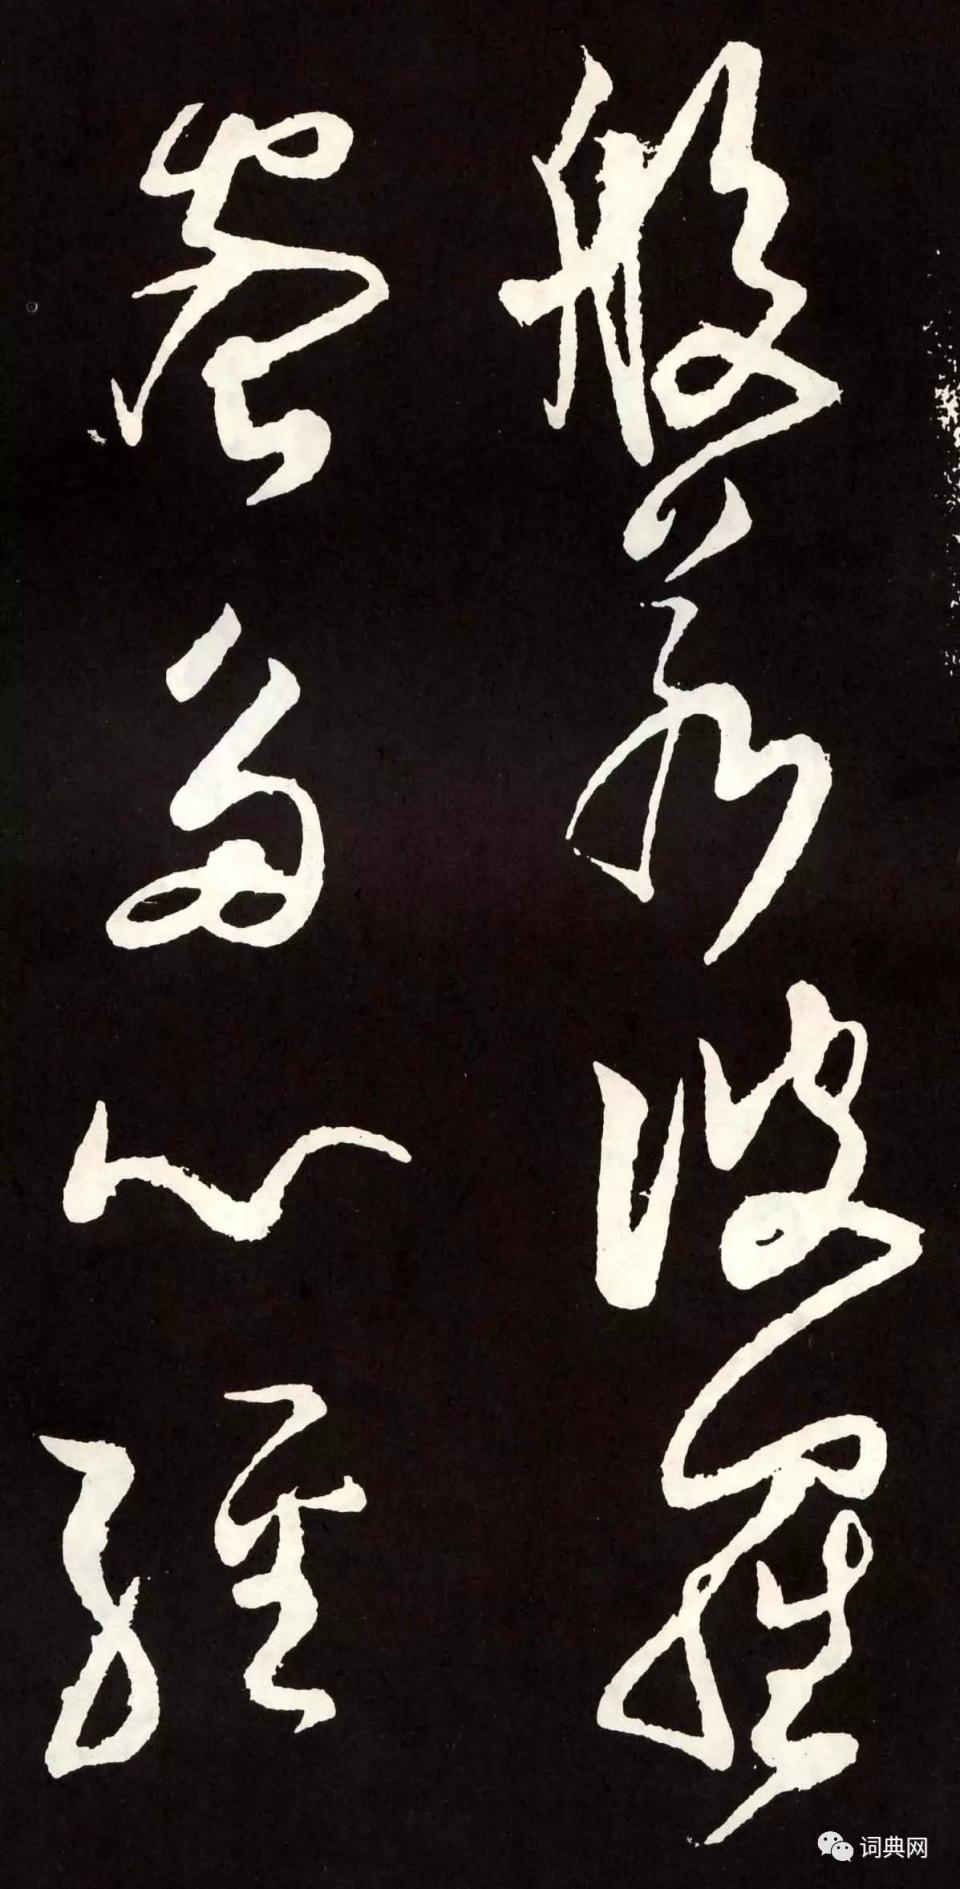 般若波羅
蜜多心經
词典网